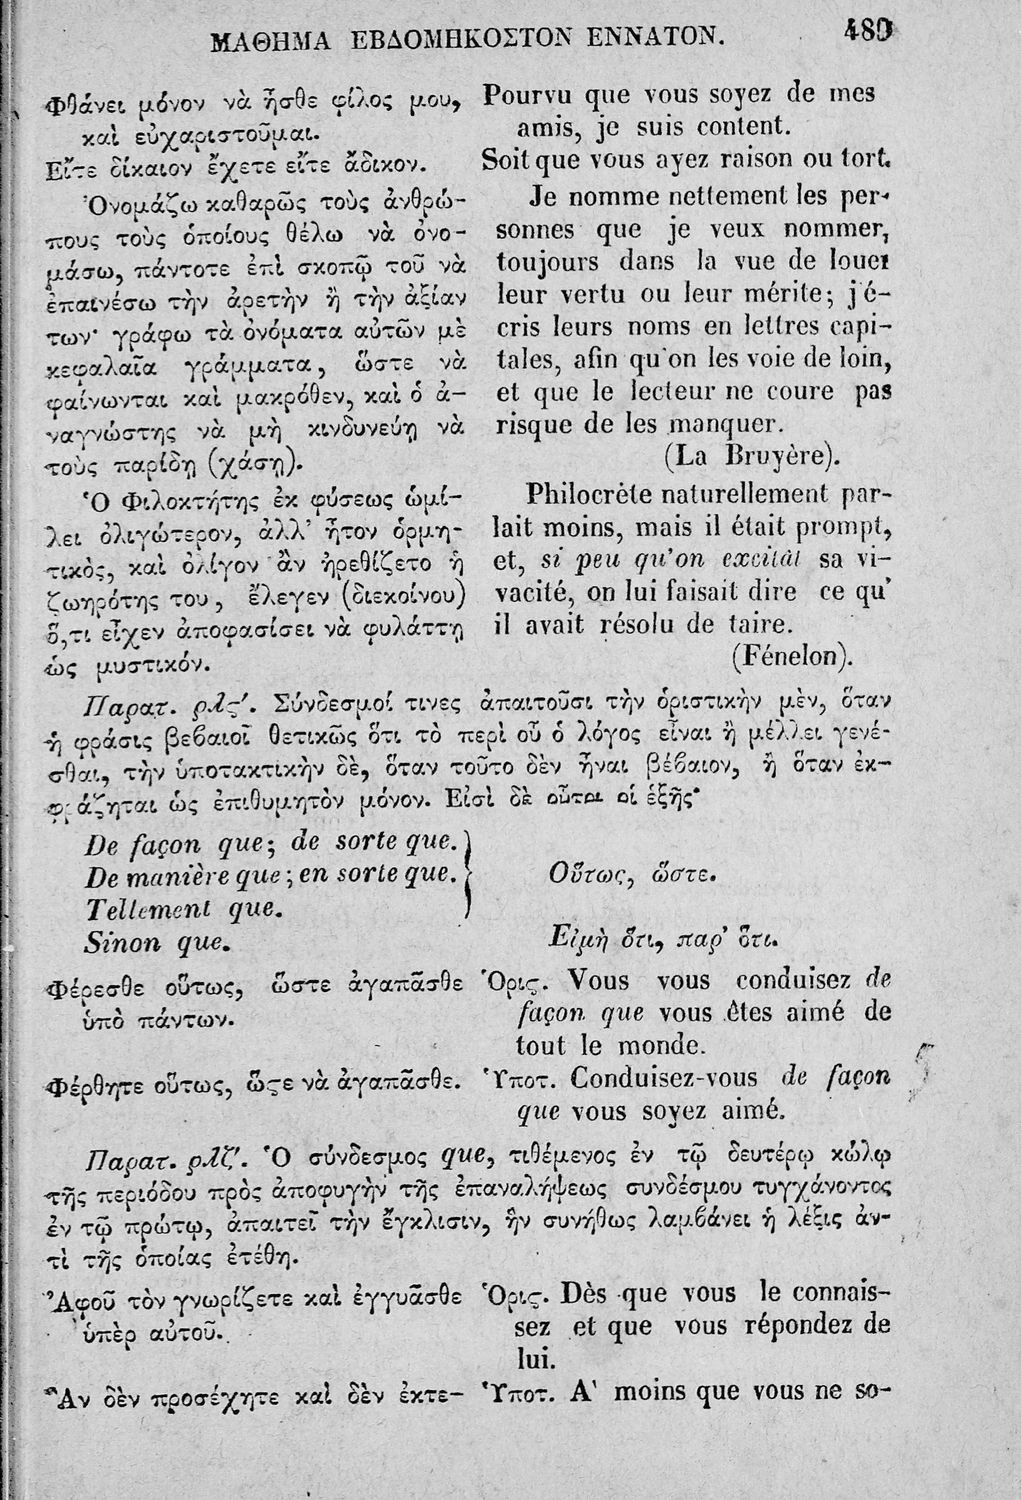 ΜΑΘΗΜΑ ΕΒΔΟΜΗΚΟΣΤΟΝ ΕΝΝΑΤΟΝ. 489
Φθάνει μόνον νὰ ἦσθε φίλος μου,
καὶ εὐχαριστοῦμαι.
Εἴτε δίκαιον ἔχετε εἴτε ἄδικον.
Ὀνομάζω καθαρῶς τοὺς ἀνθρώ-
πους τοὺς ὁποίους θέλω νὰ ὀνο-
μάσω, πάντοτε ἐπὶ σκοπῷ τοῦ νὰ
ἐπαινέσω τὴν ἀρετὴν ἢ τὴν ἀξίαν
των· γράφω τὰ ὀνόματα αὐτῶν μὲ
κεφαλαῖα γράμματα, ὥστε νὰ
φαίνωνται καὶ μακρόθεν, καὶ ὁ ἀ-
ναγνώστης νὰ μὴ κινδυνεύῃ νὰ
τοὺς παρίδῃ (χάσῃ).
Ὁ Φιλοκτήτης ἐκ φύσεως ὡμί-
λει ὀλιγώτερον, ἀλλ' ἦτον ὁρμη-
τικὸς, καὶ ὀλίγον ἂν ἠρεθίζετο ἡ
ζωηρότης του, ἔλεγεν (διεκοίνου)
ὅ,τι εἶχεν ἀποφασίσει νὰ φυλάττῃ
ὡς μυστικόν.
Pourvu que vous soyez de mes
amis, je suis content.
Soit que vous ayez raison ou tort.
Je nomme nettement les per-
sonnes que je veux nommer,
toujours dans la vue de louer
leur vertu ou leur mérite; j'é-
cris leurs noms en lettres capi-
tales, afin qu'on les voie de loin,
et que le lecteur ne coure pas
risque de les manquer.
(La Bruyère).
Philocrète naturellement par-
lait moins, mais il était prompt,
et, si peu qu'on excitât sa vi-
vacité, on lui faisait dire ce qu'
il avait résolu de taire.
(Fénelon).
Παρατ. ρλς'. Σύνδεσμοί τινες ἀπαιτοῦσι τὴν ὁριστικὴν μὲν, ὅταν
ἡ φράσις βεβαιοῖ θετικῶς ὅτι τὸ περὶ οὗ ὁ λόγος εἶναι ἢ μέλλει γενέ-
σθαι, τὴν ὑποτακτικὴν δὲ, ὅταν τοῦτο δὲν ἦναι βέβαιον, ἢ ὅταν ἐκ-
φράζηται ὡς ἐπιθυμητὸν μόνον. Εἰσὶ δὲ οὗτοι οἱ ἑξῆς·
De façon que; de sorte que.
De manière que; en sorte que.
Tellement que.
Οὕτως, ὥστε.
Sinon que. Εἰμὴ ὅτι, παρ' ὅτι.
Φέρεσθε οὕτως, ὥστε ἀγαπᾶσθε
ὑπὸ πάντων.
Ὁρις. Vous vous conduisez de
façon que vous êtes aimé de
tout le monde.
Φέρθητε οὕτως, ὥςε νὰ ἀγαπᾶσθε.
Ὑποτ. Conduisez-vous de façon
que vous soyez aimé.
Παρατ. ρλζ'. Ὁ σύνδεσμος que, τιθέμενος ἐν τῷ δευτέρῳ κώλῳ
τῆς περιόδου πρὸς ἀποφυγὴν τῆς ἐπαναλήψεως συνδέσμου τυγχάνοντος
ἐν τῷ πρώτῳ, ἀπαιτεῖ τὴν ἔγκλισιν, ἣν συνήθως λαμβάνει ἡ λέξις ἀν-
τὶ τῆς ὁποίας ἐτέθη.
Ἀφοῦ τὸν γνωρίζετε καὶ ἐγγυᾶσθε
ὑπὲρ αὐτοῦ.
Ὁρις. Dès que vous le connais-
sez et que vous répondez de
lui.
Ἂν δὲν προσέχητε καὶ δὲν ἐκτε-
Ὑποτ. A' moins que vous ne so-